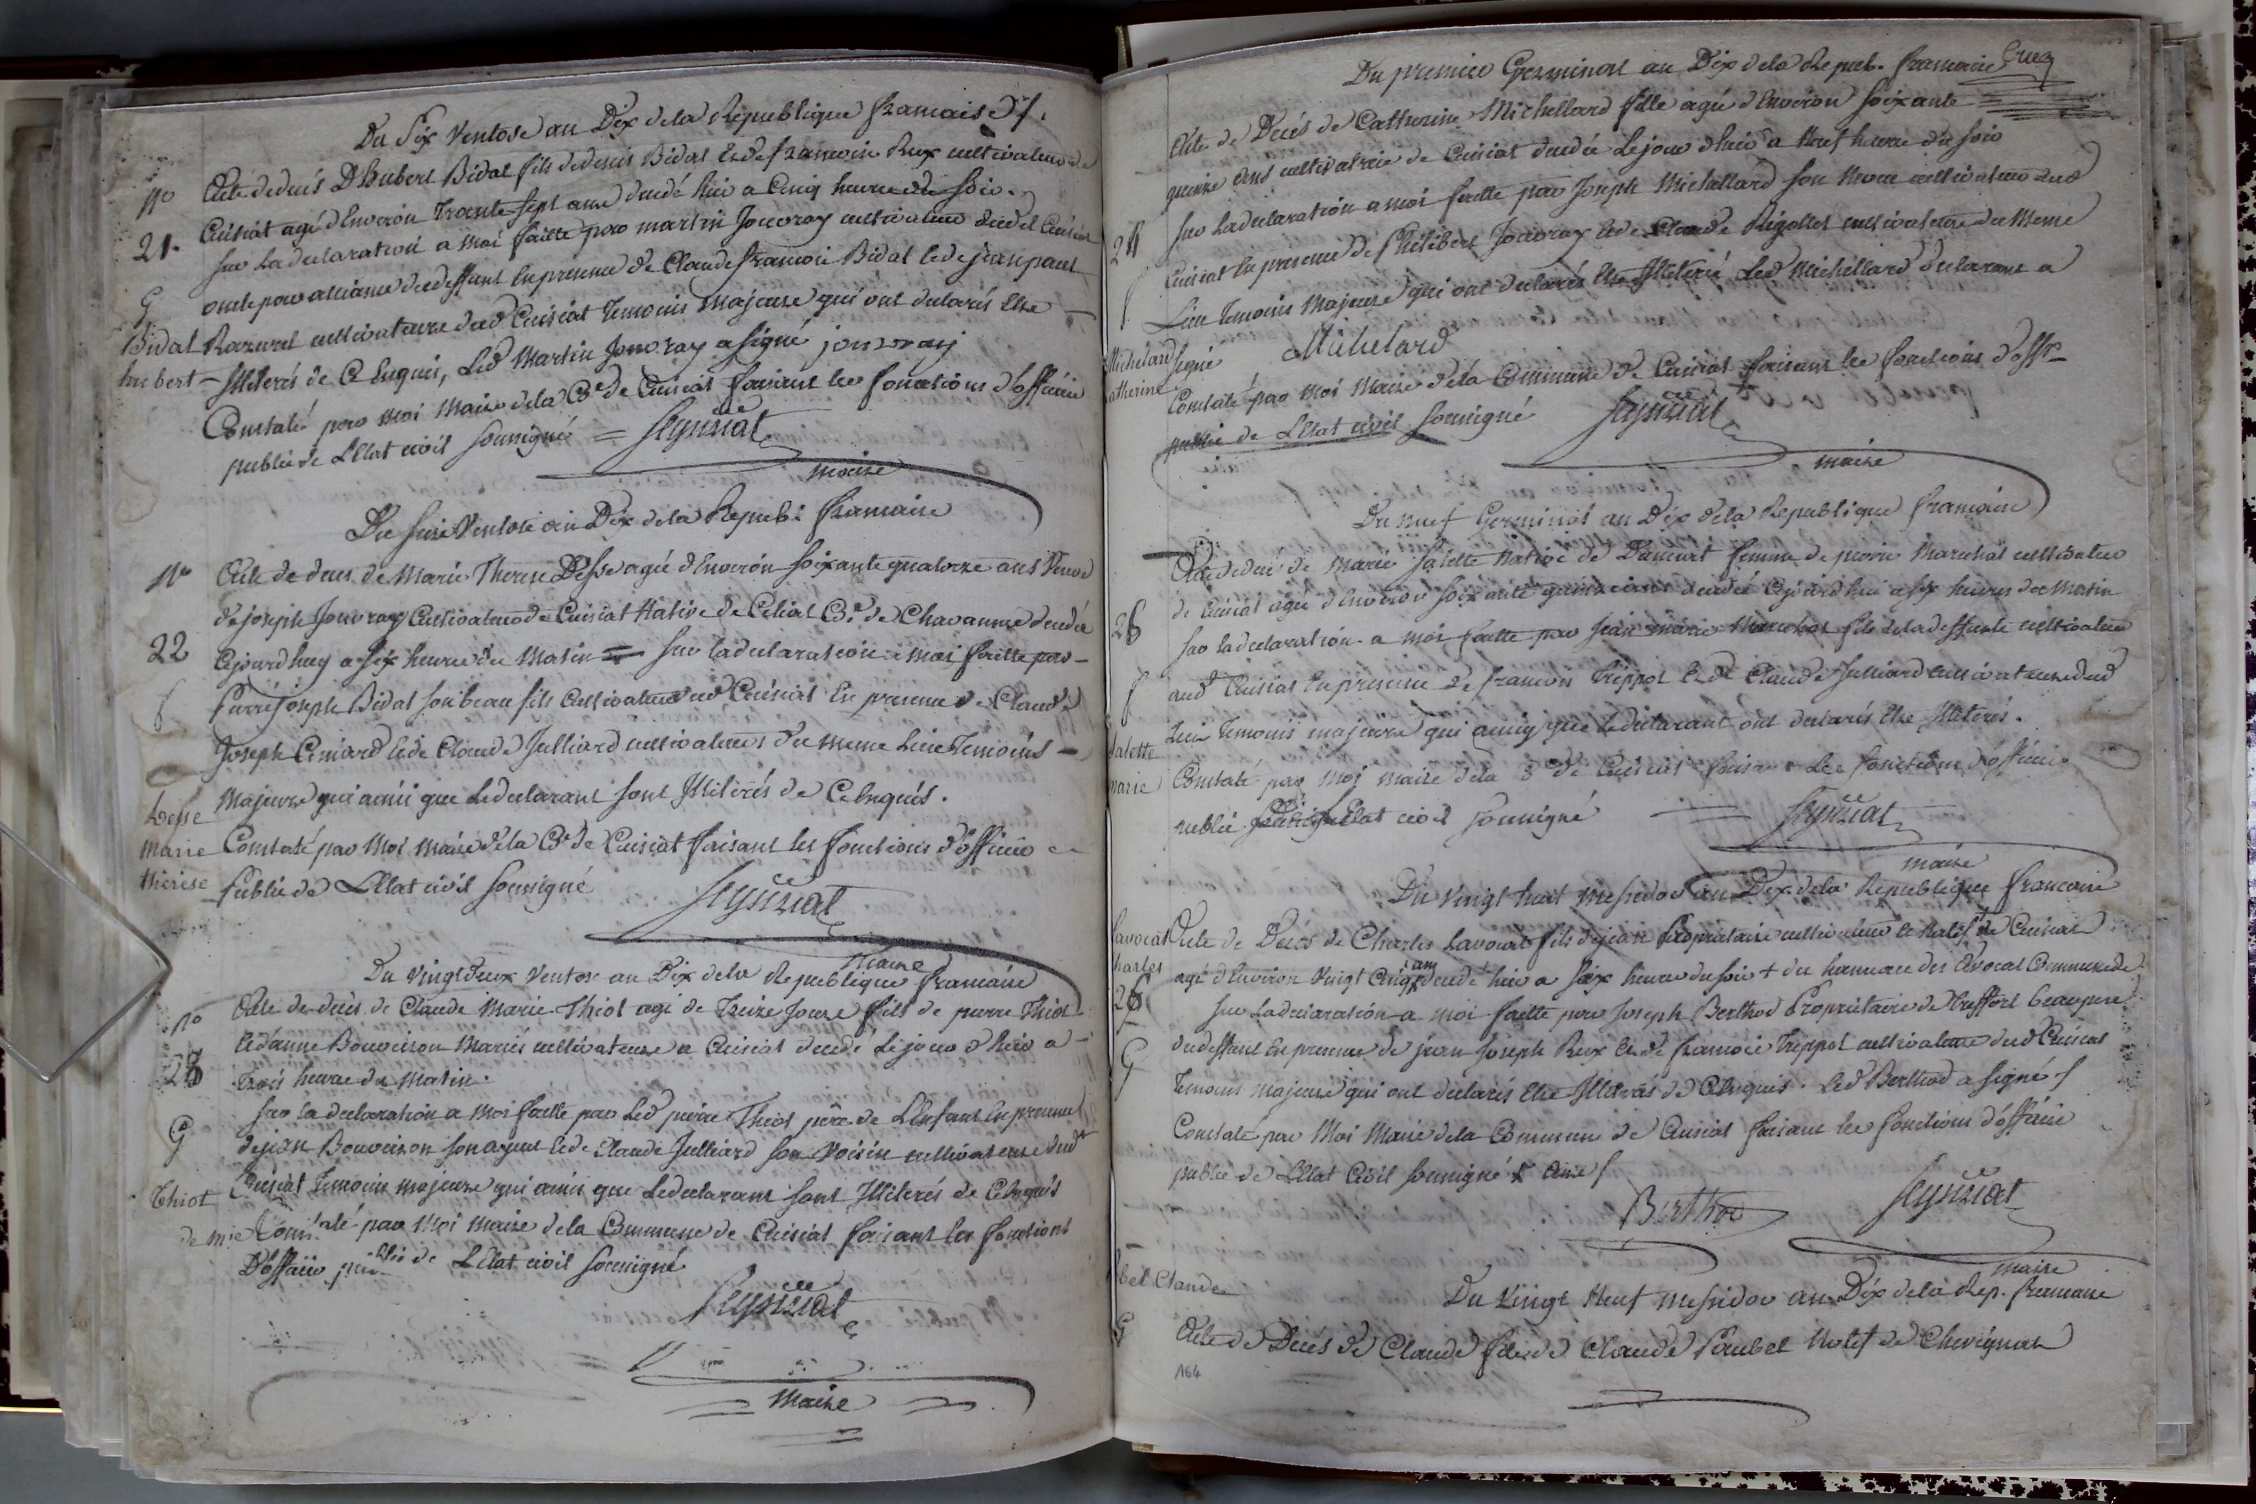 Du Six Ventose an Dix dela Republique francaise
N° Acte dedeces D hubert Bidal fils dedenis Bidal Ede francoise Rux cultivateur de
Cuisiat agé d'Environ Trente Sept ans decedé hier a Cinq heures du Soir.
21. Sur La declaration a moi faitte par martin Jouvray cultivateur dud.t Cuisiat
oncle par alliance du deffunt En presence de Claude francois Bidal Ede jean paul
G
Bidal Razurel cultivateurs dud Cuisiat Temoins majeurs qui ont declarés Etre
hubert Illiterés de Ce Enquis, Led Martin Jouvray a signé jouvray
Constaté par moi Maire dela C.e de Cuisiat faisant les fonctions d'officier
public de L'Etat civil Soussigné
maire
Du seize Ventose an Dix dela Repub. francaise
N° Acte de deces de Marie Therese Desse agée d'Environ soixante quatorze ans Veuve
de joseph Jouvray Cultivateur de Cuisiat Native de Celiat C.e de Chavannes decedée
22 Ajourdhuy a six heures du Matin Sur la declaration a moi faitte par
Pierre Joseph Bidal son beau fils Cultivateur aud Cuisiat En presence de Claude
f
Joseph Ede Claude Julliard cultivateurs du meme Lieu Temoins
Majeurs qui ainsi que Le declarant sont Illiterés de Ce Enquis.
Desse
Marie Constaté par Moi maire dela C.e de Cuisiat faisant les fonctions d'officier
therese Public de L'Etat civil Soussigné
Maire
Du vingt deux Ventose an Dix dela Republique francaise
N° Acte de deces de Claude Marie Thiot agé de Treize Jours fils de pierre Thiot
Ed anne Bouveiron Mariés cultivateurs a Cuisiat decedé Le jour d'hier a
23 Trois heures du Matin.
Sur la declaration a Moi faitte par Led pierre Thiot père de L'Enfant En presence
G de jean Bouveiron son ayeul Ede Claude Julliard son Voisin cultivateurs dud
Thiot Cuisiat Temoins majeurs qui ainsi que Le declarant sont Illiterés de Ce Enquis
de mie Constaté par Moi Maire dela Commune de Cuisiat faisant les fonctions
D'officier public de L'Etat civil Soussigné
Maire
Du premier Germinal an Dix dela Repub. francaise
Acte de Decés de Catherine Michellard fille agée d'Environ soixante
quinze ans cultivatrice de Cuisiat decedée Le jour d'hier a Neuf heures du soir
24 Sur La declaration a moi faitte par Joseph Michellard son Neveu cultivateur dud
Cuisiat En presence de Philibert Jouvray Ede Claude Rigollet cultivateurs du Meme
f Lieu Temoins Majeurs qui ont declarés Etre Illiterés Led Michellard declarant a
Michelard signé Michelard
atherine Constaté par Moi Maire dela Commune de Cuisiat faisant les fonctions d'offr
public de L'Etat civil Soussigné
maire
Du neuf Germinal an Dix dela Republique francaise
Acte de deces de Marie Salette Native de femme de pierre Marechal cultivateur
de Cuisiat agée d'Environ soixante quinze ans decedée Ajourdhui a six heures du Matin
25 Sur la declaration a moi faitte par jean marie Marechal fils dela deffunte cultivateur
f aud Cuisiat En presence de francois Trippoz Ede Claude Julliard cultivateurs dud
Lieu Temoins majeurs qui ainsi que Le declarant ont declarés Etre Illiterés.
Salette
Marie Constaté par Moi Maire dela C.e de Cuisiat faisant Les fonctions d'officier
public L'Etat civil Soussigné
maire
Du Vingt huit Messidor an Dix dela Republique francaise
Lavocat Acte de Decés de Charles Lavocat fils de jean Proprietaire cultivateur Et Natif de Cuisiat
harles agé d'Environ Vingt Cinq ans decedé hier a six heures du soir + du hameau des Avocat Commune de
26 Sur La declaration a moi faitte par Joseph Berthod Proprietaire de Treffort beaupere
G du deffunt En presence de jean Joseph Rux Ede francois Trippoz cultivateurs dud Cuisiat
Temoins majeurs qui ont declarés Etre Illiterés de Ce Enquis. Led Berthod a signé
Constaté par Moi Maire dela Commune de Cuisiat faisant les fonctions d'officier
public de L'Etat Civil Soussigné
Berthod
maire
bel Claude
Du Vingt Neuf Messidor an Dix dela Rep. francaise
G Acte de Decés de Claude fils de Claude Natif de Chevignat
164